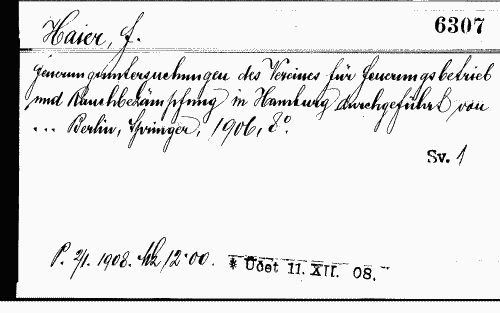 Haier, F.
6307
Feuerungsuntersuchungen des Vereines für Feuerungsbetrieb
und Rauchbekämpfung in Hamburg durchgeführt von
... Berlin, Springer, 1906, 8°.
Sv. 1
P. 2/1. 1908. Mk 12·00.
* Účet 11. XII. 08.